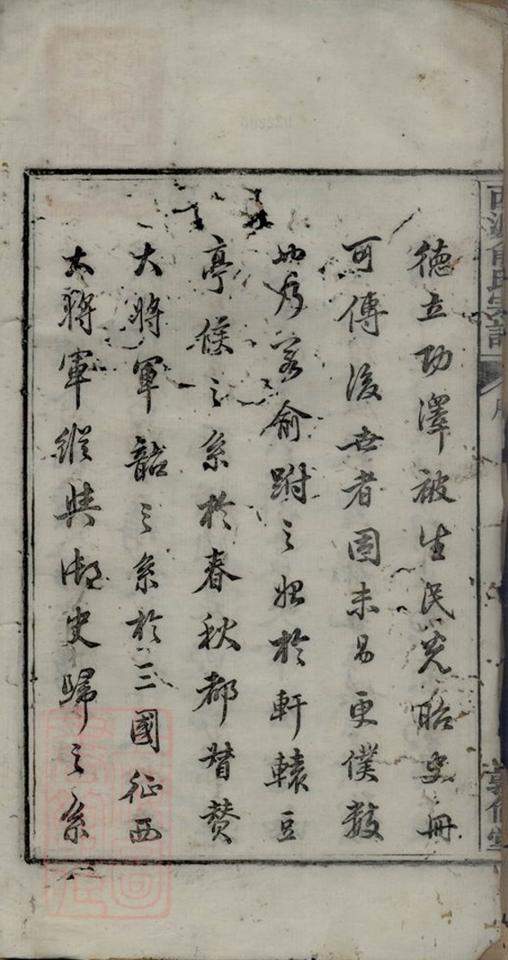 德立功澤被生民光昭史冊
可傳後世者固未易更僕數
也考若俞跗之始於軒轅豆
亭侯之系於春秋都督贊
大將軍韶之系於三國征西
大將軍縱與御史歸之系
俞氏宗譜